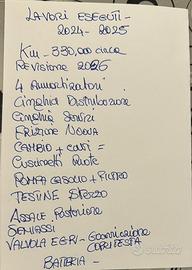 LAVORI ESEGUITI -
2024 - 2025
Km - 330,000 circa
Revisione 2026
4 Ammortizzatori
Cinghia Distribuzione
Cinghia Servizi
Frizione Nuova
CAMBIO + cuffie =
Cuscinetti Ruote
POMPA GASOLIO + FILTRO
TESTINE Sterzo
Assale Posteriore
SEMIASSI
VALVOLA EGR - Guarnizione
COPRITESTA
BATTERIA -
Subito